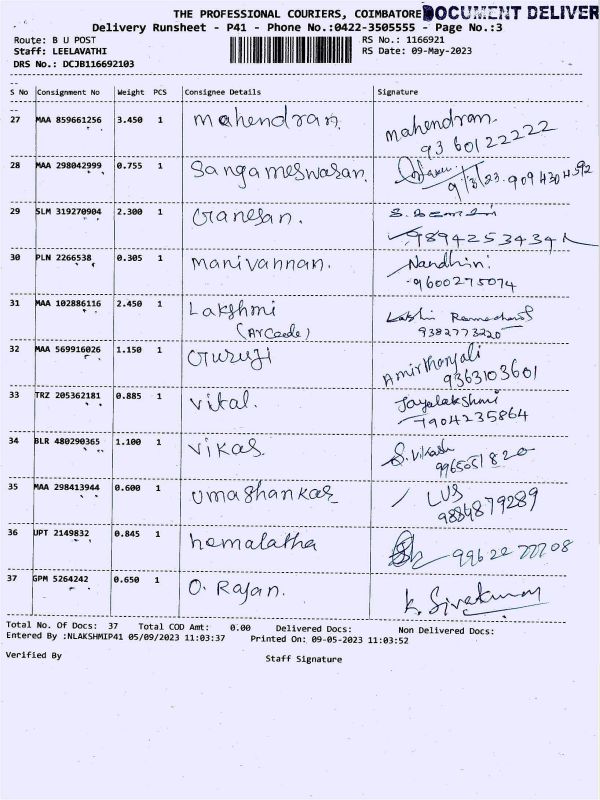 THE PROFESSIONAL COURIERS, COIMBATORE DOCUMENT DELIVER
Delivery Runsheet - P41 - Phone No.:0422-3505555 - Page No.:3
Route: B U POST RS No.: 1166921
Staff: LEELAVATHI RS Date: 09-May-2023
DRS No.: DCJB116692103
S No Consignment No Weight PCS Consignee Details Signature
27 MAA 859661256 3.450 1 Mahendran. Mahendran.
9360122222
28 MAA 298042999 0.755 1 Sangameswaran.
29 SLM 319270904 2.300 1 Ganesan.
9894253434
30 PLN 2266538 0.305 1 Manivannan. Nandhini
9600275074
31 MAA 102886116 2.450 1 Lakshmi
(Arcade) 9382773220
32 MAA 569916026 1.150 1 Guruji
9363103601
33 TRZ 205362181 0.885 1 Vital. Jayalakshmi
7904235864
34 BLR 480290365 1.100 1 Vikas. S. Vikash
9965051820
35 MAA 298413944 0.600 1 Umashankar LUS
9884879289
36 UPT 2149832 0.845 1 hemalatha
37 GPM 5264242 0.650 1 O. Rajan. K. Sivakumar
Total No. Of Docs: 37 Total COD Amt: 0.00 Delivered Docs: Non Delivered Docs:
Entered By :NLAKSHMIP41 05/09/2023 11:03:37 Printed On: 09-05-2023 11:03:52
Verified By Staff Signature